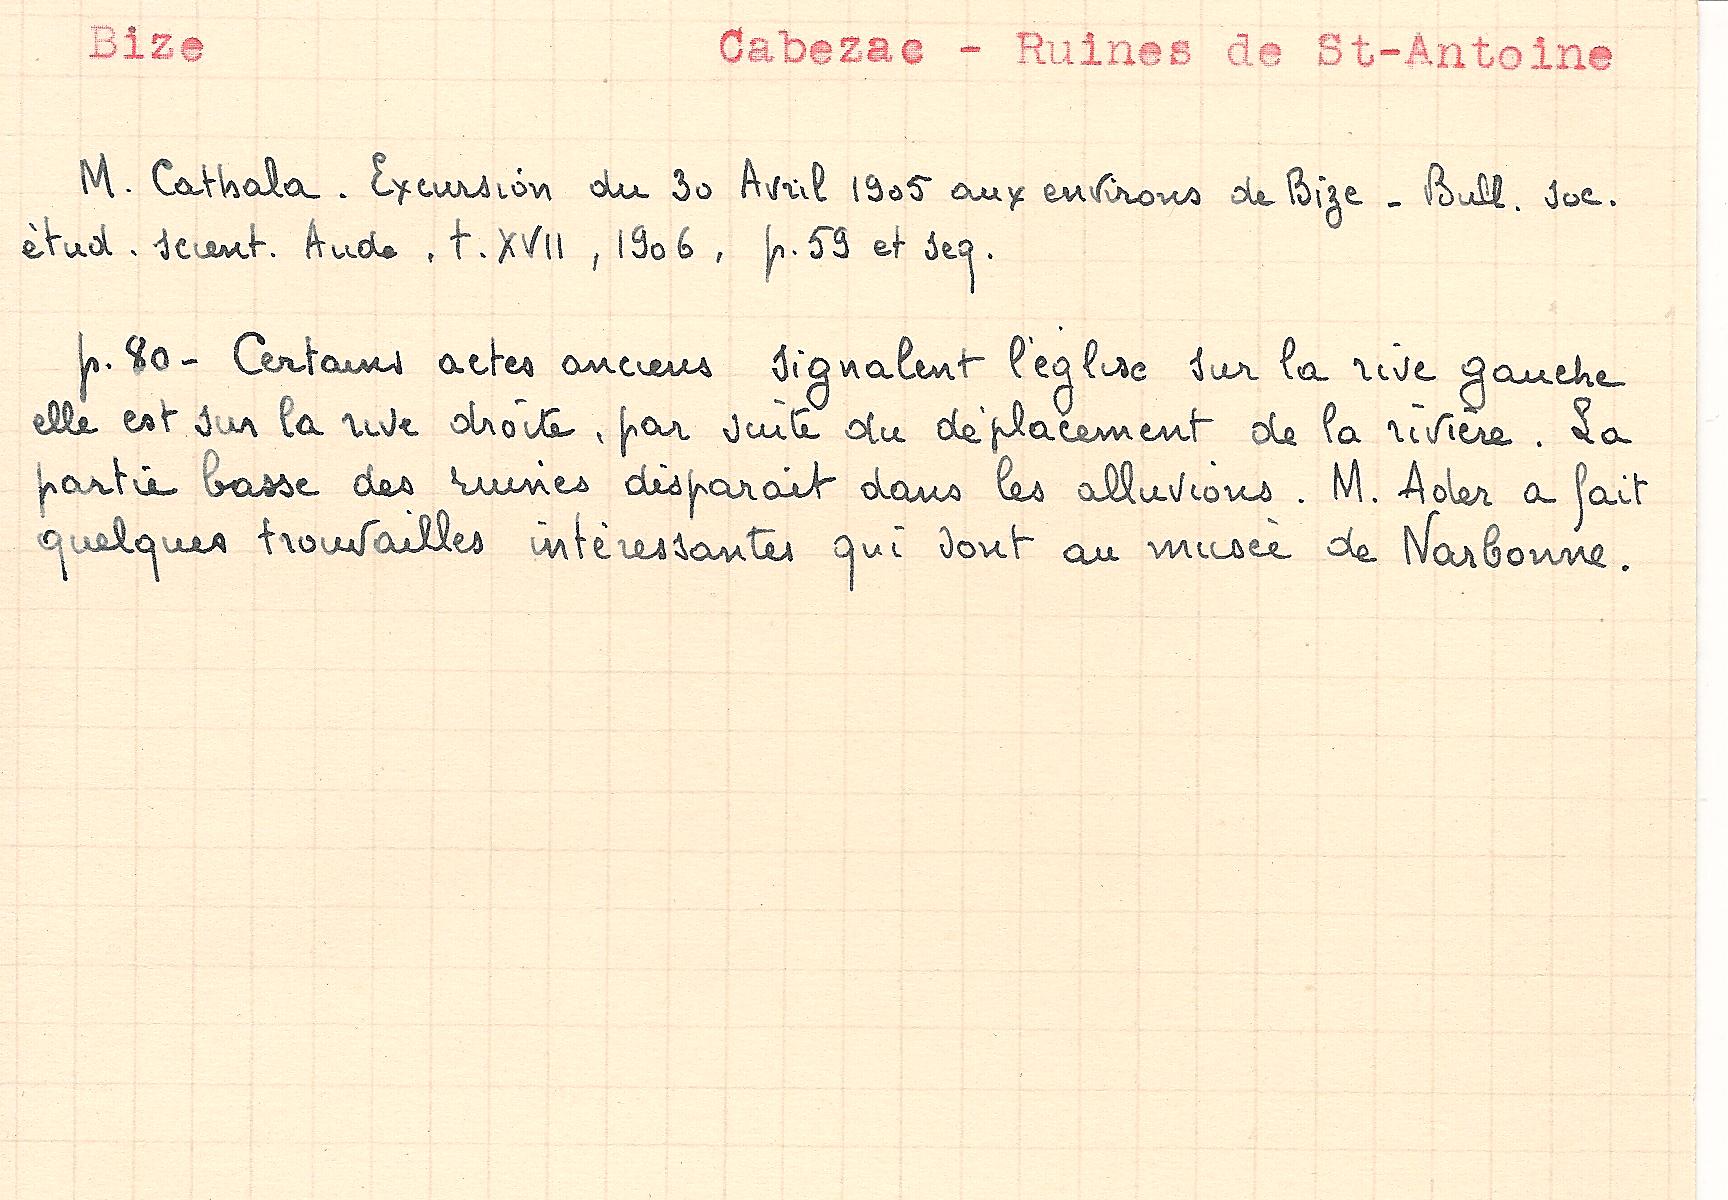 Bize Cabezac - Ruines de St-Antoine
M. Cathala. Excursion du 30 Avril 1905 aux environs de Bize - Bull. Soc.
étud. scient. Aude, t. XVII, 1906, p. 59 et seq.
p. 80 - Certains actes anciens signalent l'église sur la rive gauche
elle est sur la rive droite, par suite du déplacement de la rivière. La
partie basse des ruines disparait dans les alluvions. M. Ader a fait
quelques trouvailles intéressantes qui sont au musée de Narbonne.